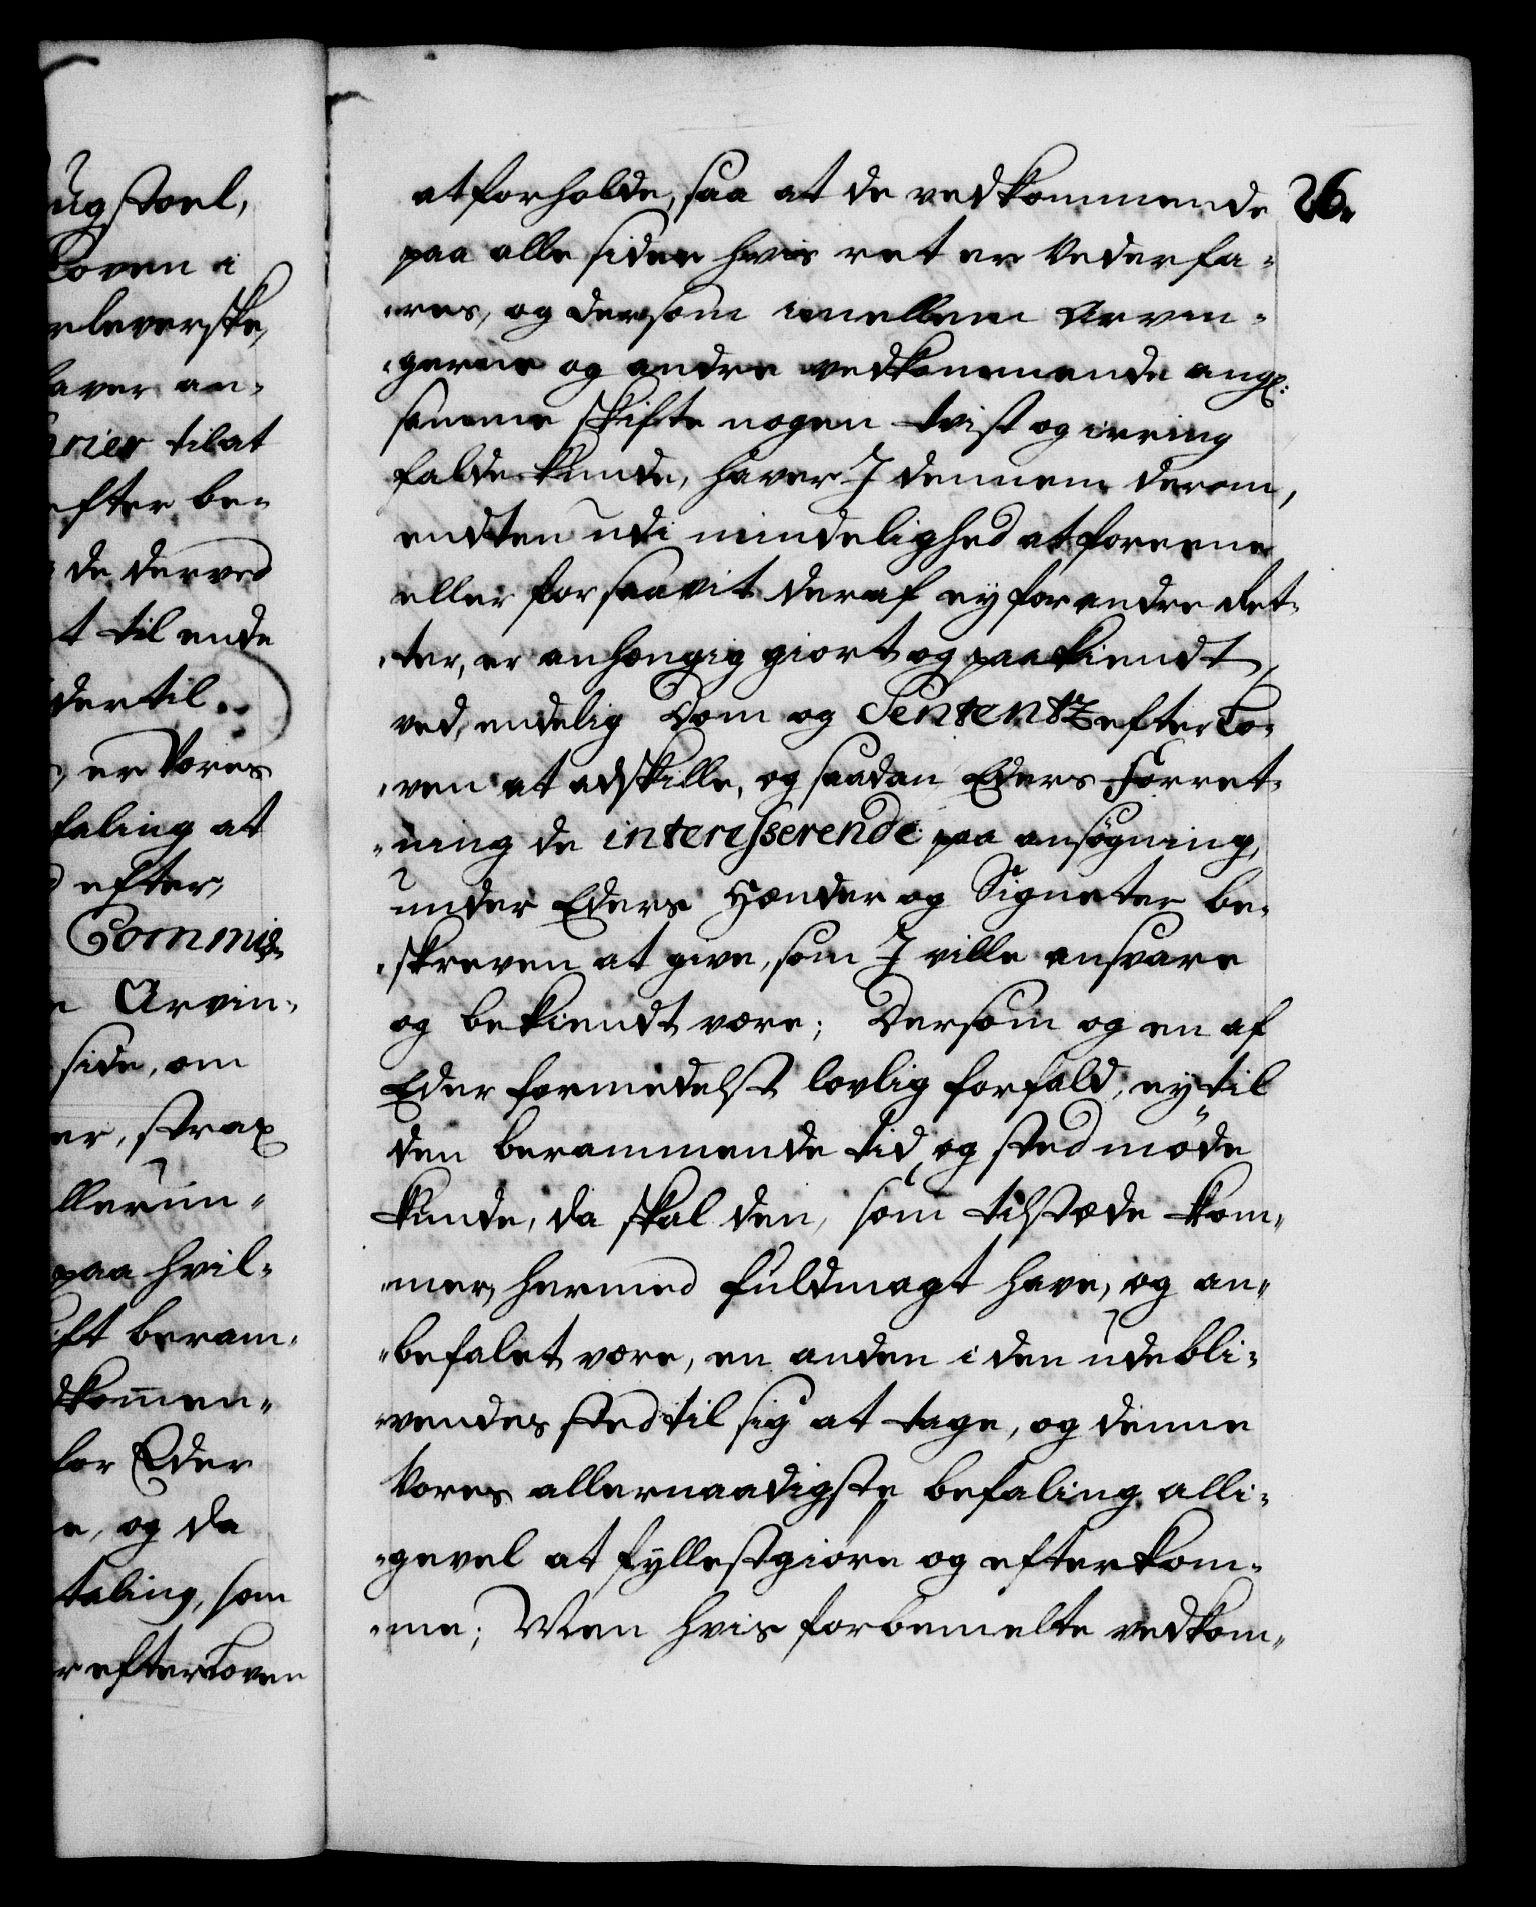 ugstoel,
Loven i
rleverske,
aver an¬
rier til at
efter be¬
de derved
t til ende
dertil.
er Vores
faling at
efter,
Commis¬
Arvin¬
side, om
er, strax
llerun¬
paa hvil¬
ift beram¬
dkommen¬
for Eder
e, og da
taling, som
r efter Loven
26.
at forholde, saa at de vedkommende
paa alle sider hvis ret er Vederfa¬
res, og dersom imellem Arvin¬
gerne og andre vedkommende ang:
samme skifte nogen tvist og irring
falde kunde, haver I dennem derom,
endten udi mindelighed at foreene
eller for saavit deraf ey for andre Ret¬
ter, er anhængig giort og paakiendt,
ved endelig Dom og Sententz efter Lo¬
ven at adskille, og saadan Eders Forret¬
ning de interesserende paa ansøgning,
under Eders Hænder og Signeter be¬
skreven at give, som I ville ansvare
og bekiendt være; Dersom og en af
Eder formedelst lovlig forfald, ey til
den berammende tid og sted møde
kunde, da skal den, som tilstæde kom¬
mer, hermed fuldmagt have, og an¬
befalet være, en anden i den udebli¬
vendes sted til sig at tage, og denne
Vores allernaadigste befaling alli¬
gevel at fyllestgiøre og efterkom¬
me; Men hvis forbemelte vedkom¬